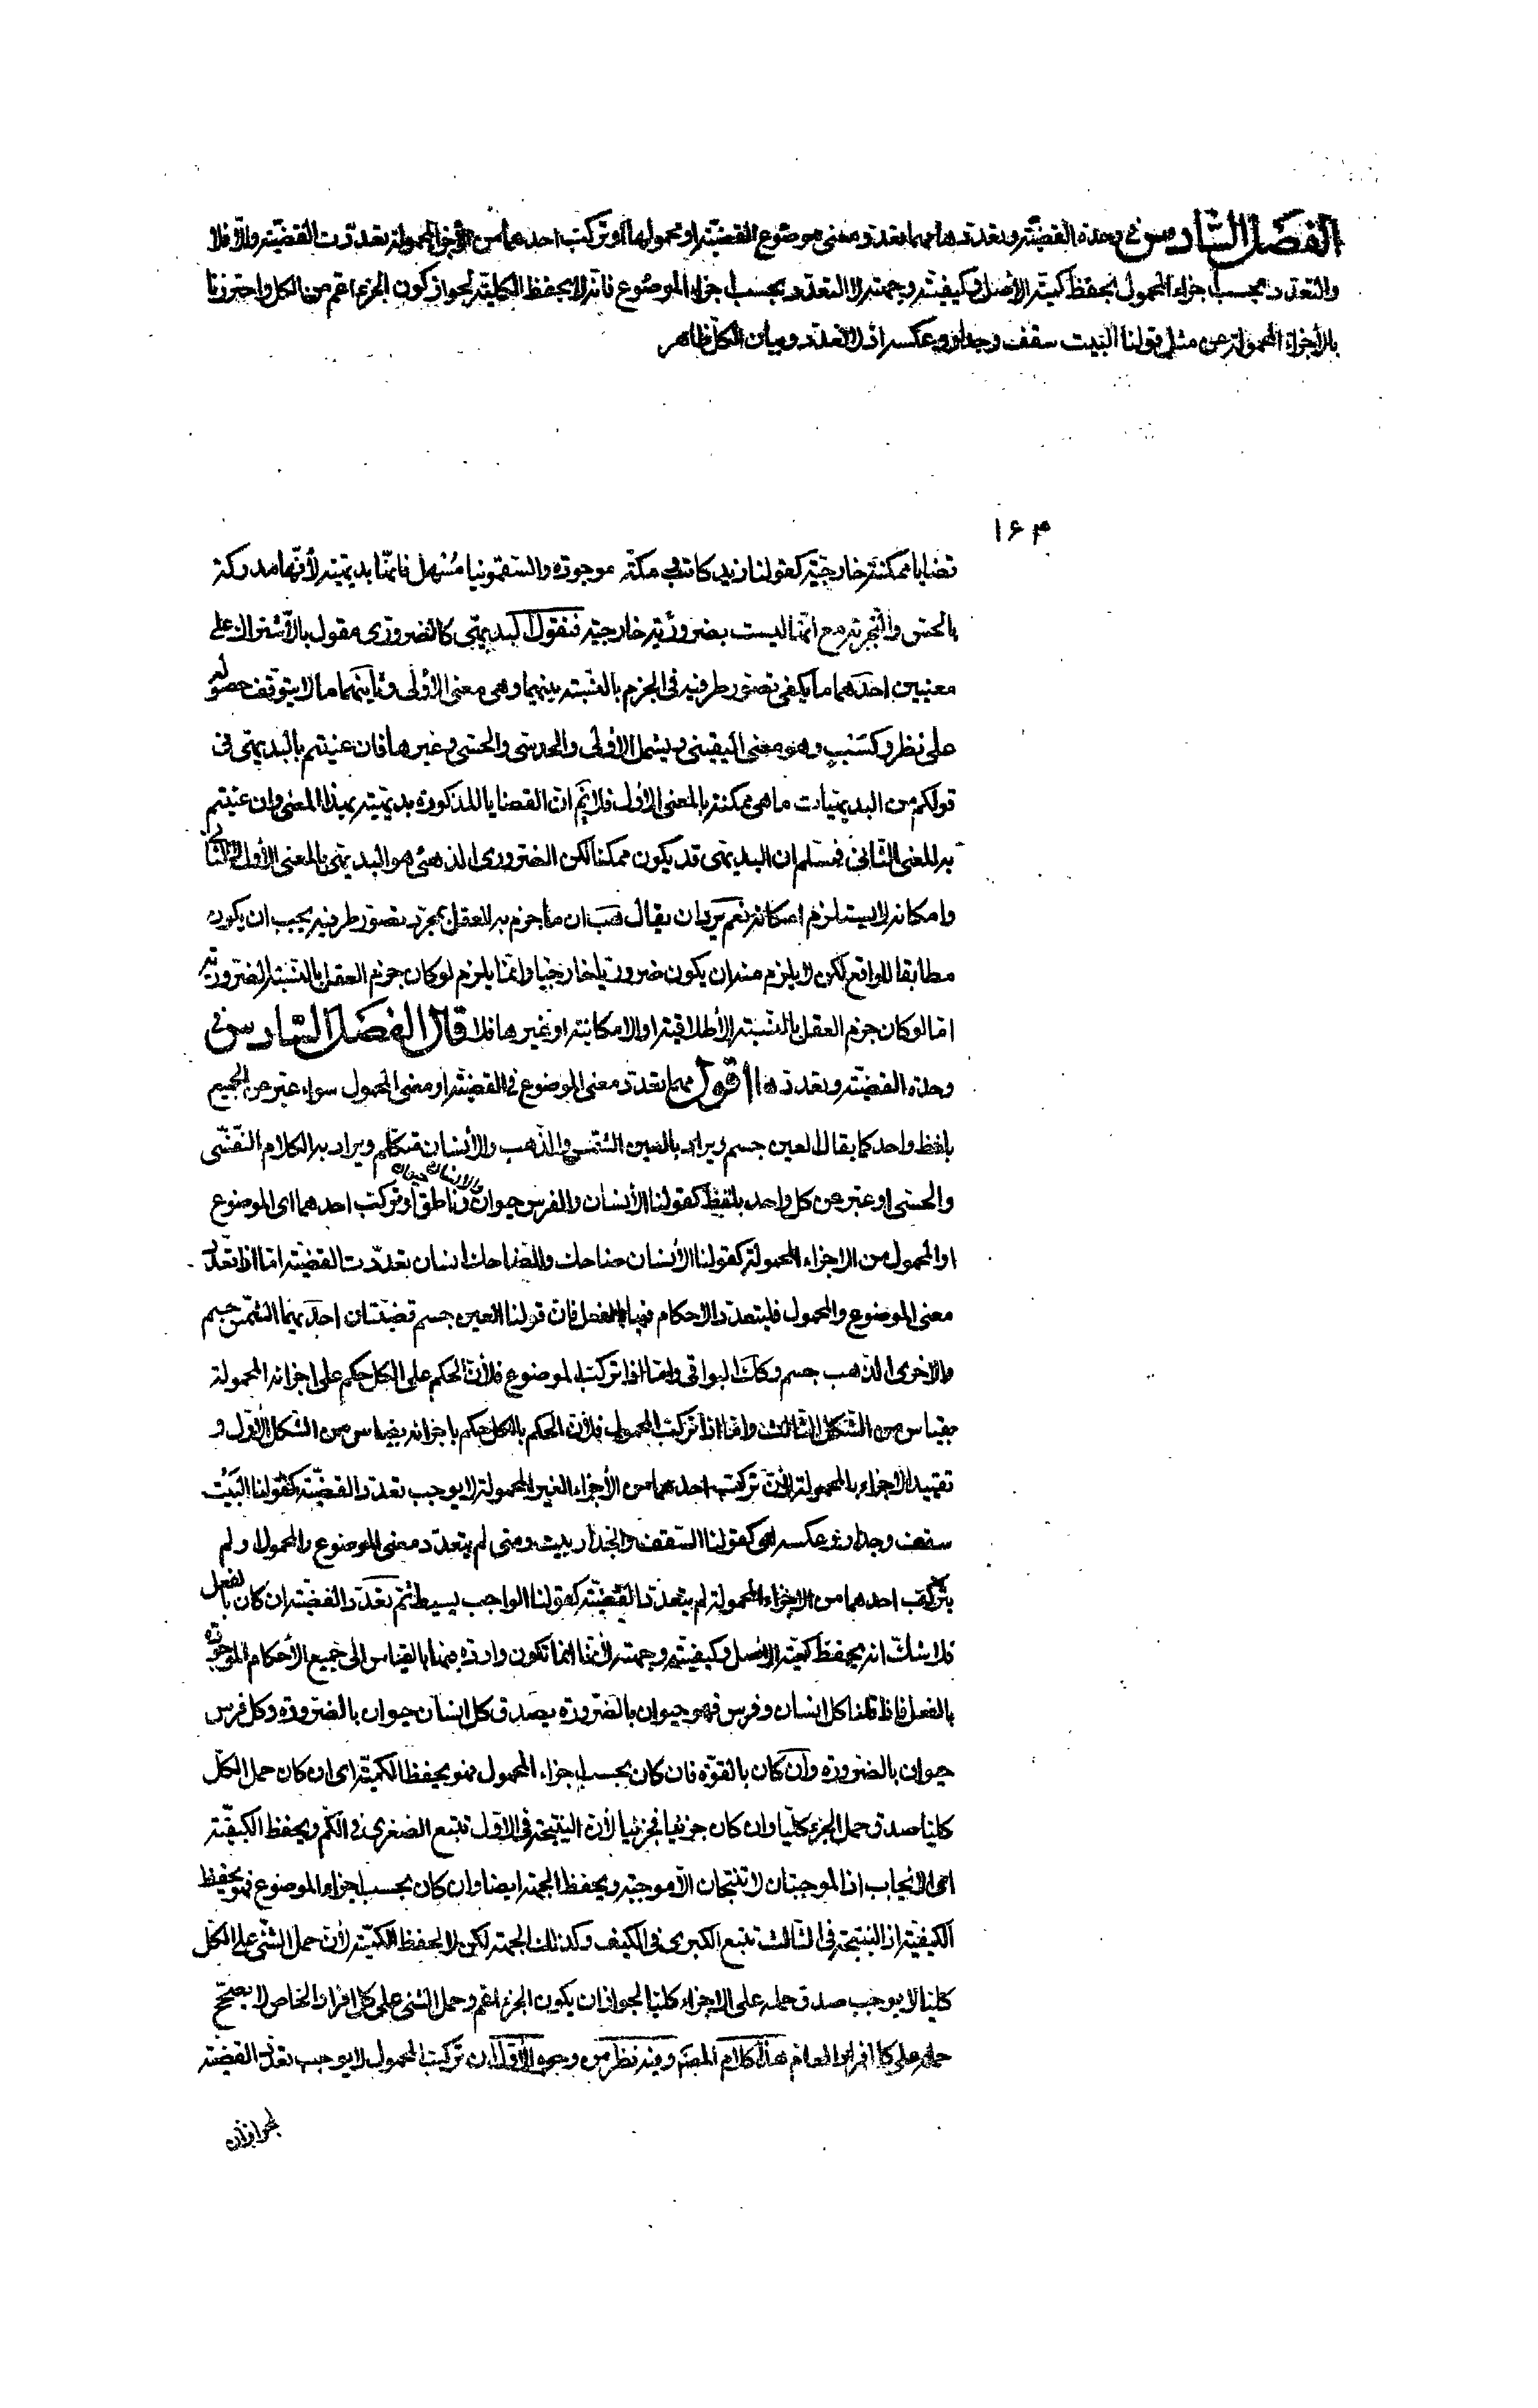 الفصل السّادس فى وحدة القضيّة وتعدّدها مهما تعدّد معنى موضوع القضيّة او محمولها او تركّب احدهما من الأجزاء المحمولة تعدّدت القضيّة والّا فلا
والتعدّد بحسب اجزاء المحمول يحفظ كميّة الأصل وكيفيّته وجهته لا التعدّد بحسب اجزاء الموضوع فانّه لا يحفظ الكليّة لجواز كون الجزء اعمّ من الكل واحترزنا
بالأجزاء المحمولة عن مثل قولنا البيت سقف وجدار وعكسه اذ لا تعدّد وبيان الكلّ ظاهر
۱۶۴
قضايا ممكنة خارجيّة كقولنا زيد كاتب مكّة موجودة والسّقمونيا مُسْهل فانّها بديهيّة لأنّها مدركة
بالحسّ والتّجربة مع انّها ليست بضروريّة خارجيّة فنقول البديهىّ كالضرورى مقول بالأشتراك على
معنيين احدهما ما يكفى تصوّر طرفيه فى الجزم بالنّسبة بينهما وهى معنى الأوّلى وثانيهما ما لا يتوقّف حصوله
على نظر وكسبٍ وهو معنى اليقينى ويشمل الأوّلى والحدسى والحسّى وغيرها فان عنيتم بالبديهى فى
قولكم من البديهيّات ما هى ممكنة بالمعنى الأوّل فلا نم انّ القضايا المذكورة بديهيّة بهذا المعنى وان عنيتم
به المعنى الثانى فمسلّم ان البديهى قد يكون ممكنا لكن الضرورى الذهنى هو البديهى بالمعنى الأول لا الثّانى
وامكانه لا يستلزم امكانه نعم يرد ان يقال هب ان ما جزم به العقل بمجرّد تصوّر طرفيه يجب ان يكون
مطابقا للواقع لكن لا يلزم منه ان يكون ضروريا خارجيا وانّما يلزم لو كان جزم العقل بالنّسبة الضّروريّة
امّا لو كان جزم العقل بالنّسبة الأطلاقيّة او الامكانيّة او غيرها فلا قال الفصل السّادس فى
وحدة القضيّة وتعدّدها اقول مهما تعدّد معنى الموضوع فى القضيّة او معنى المحمول سواء عبّر عن الجميع
بلفظ واحد كما يقال العين جسم ويراد بالعين الشّمس والذّهب والأنسان متكلّم ويراد به الكلام النّفسى
والحسّى او عبّر عن كل واحد بلفظ كقولنا الأنسان والفرس حيوان والانسان حيوان وناطق او تركّب احدهما اى الموضوع
او المحمول من الاجزاء المحمولة كقولنا الأنسان ضاحك والضاحك انسان تعدّدت القضيّة امّا اذا تعدّد
معنى الموضوع والمحمول فليتعدّد الاحكام فيها بالفعل فانّ قولنا العين جسم قضيّتان احديهما الشّمس جسم
والاخرى الذهب جسم وكذا البواقى وامّا اذا تركّب الموضوع فلأنّ الحكم على الكل حكم على اجزائه المحمولة
بقياس من الشّكل الثّالث وامّا اذا تركّب المحمول فلأنّ الحكم بالكلّ حكم باجزائه بقياس من الشّكل الأوّل و
تقييد الأجزاء بالمحمولة لأنّ تركّب احدهما من الأجزاء الغير المحمولة لا يوجب تعدّد القضيّة كقولنا البَيْت
سقف وجدار وعكسه اى كقولنا السّقف والجدار بيت ومتى لم يتعدّد معنى الموضوع والمحمول ولم
يتركّب احدهما من الاجزاء المحمولة لم يتعدّد القضيّة كقولنا الواجب بسيط ثمّ تعدّد القضيّة ان كان بالفعل
فلا شكّ انه يحفظ كميّة الأصل وكيفيّته وجهته لأنّها انما تكون واردة بها بالقياس الى جميع الأحكام الموجودة
بالفعل فاذا قلنا كل انسان وفرس فهو حيوان بالضّرورة يصدق كل انسان حيوان بالضّرورة وكل فرس
حيوان بالضّرورة وان كان بالقوّة فان كان بحسب اجزاء المحمول فهو يحفظ الكميّة اى ان كان حمل الكلّ
كليّا صدق حمل الجزء كليّا وان كان جزئيا فجزئيا لأنّ النتيجة فى الأوّل تتبع الصغرى فى الكمّ ويحفظ الكيفيّة
اى الايجاب اذ الموجبتان لا تنتجان الّا موجبة ويحفظ الجهة ايضا وان كان بحسب اجزاء الموضوع فهو يحفظ
الكيفيّة اذ النتيجة فى الثّالث تتبع الكبرى فى الكيف وكذلك الجهة لكن لا يحفظ الكميّة لأنّ حمل الشّىء على الكلّ
كليّا لا يوجب صدق حمله على الاجزاء كليّا لجواز ان يكون الجزء اعمّ وحمل الشّىء على كلّ افراد الخاص لا يصحّح
حمله على كل افراد العام هذا كلام المصنّف وفيه نظر من وجوه الأوّل ان تركّب المحمول لا يوجب تعدّد القضيّة
لجواز ان